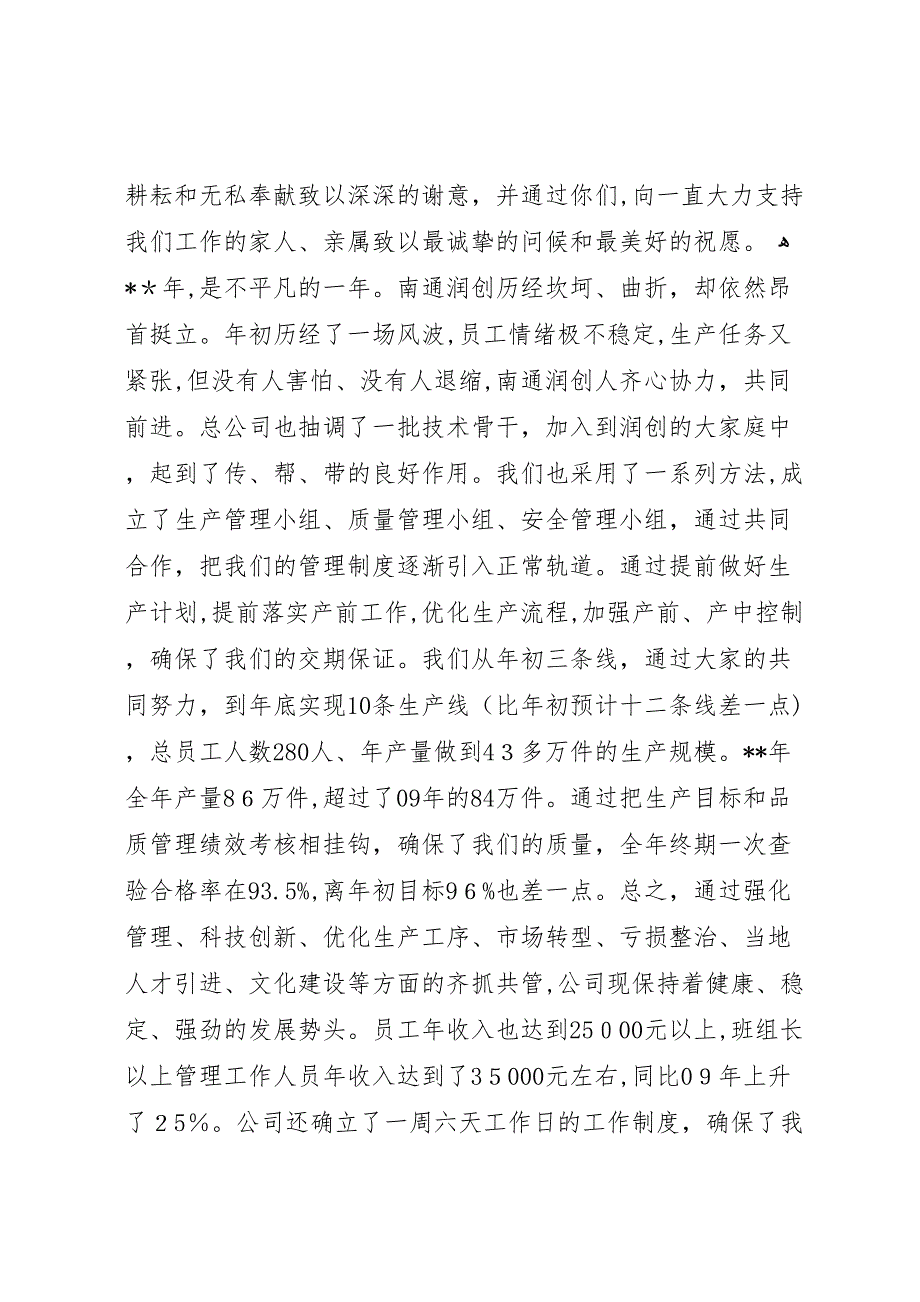 耕耘和无私奉献致以深深的谢意，并通过你们,向一直大力支持
我们工作的家人、亲属致以最诚挚的问候和最美好的祝愿。 ﻫ
**年,是不平凡的一年。南通润创历经坎坷、曲折，却依然昂
首挺立。年初历经了一场风波,员工情绪极不稳定,生产任务又
紧张,但没有人害怕、没有人退缩,南通润创人齐心协力，共同
前进。总公司也抽调了一批技术骨干，加入到润创的大家庭中
，起到了传、帮、带的良好作用。我们也采用了一系列方法,成
立了生产管理小组、质量管理小组、安全管理小组，通过共同
合作，把我们的管理制度逐渐引入正常轨道。通过提前做好生
产计划,提前落实产前工作,优化生产流程,加强产前、产中控制
，确保了我们的交期保证。我们从年初三条线，通过大家的共
同努力，到年底实现10条生产线（比年初预计十二条线差一点)
，总员工人数280人、年产量做到4３多万件的生产规模。**年
全年产量8６万件,超过了09年的84万件。通过把生产目标和品
质管理绩效考核相挂钩，确保了我们的质量，全年终期一次查
验合格率在93.5%,离年初目标9６%也差一点。总之，通过强化
管理、科技创新、优化生产工序、市场转型、亏损整治、当地
人才引进、文化建设等方面的齐抓共管,公司现保持着健康、稳
定、强劲的发展势头。员工年收入也达到25０00元以上,班组长
以上管理工作人员年收入达到了3５000元左右,同比0９年上升
了２5％。公司还确立了一周六天工作日的工作制度，确保了我